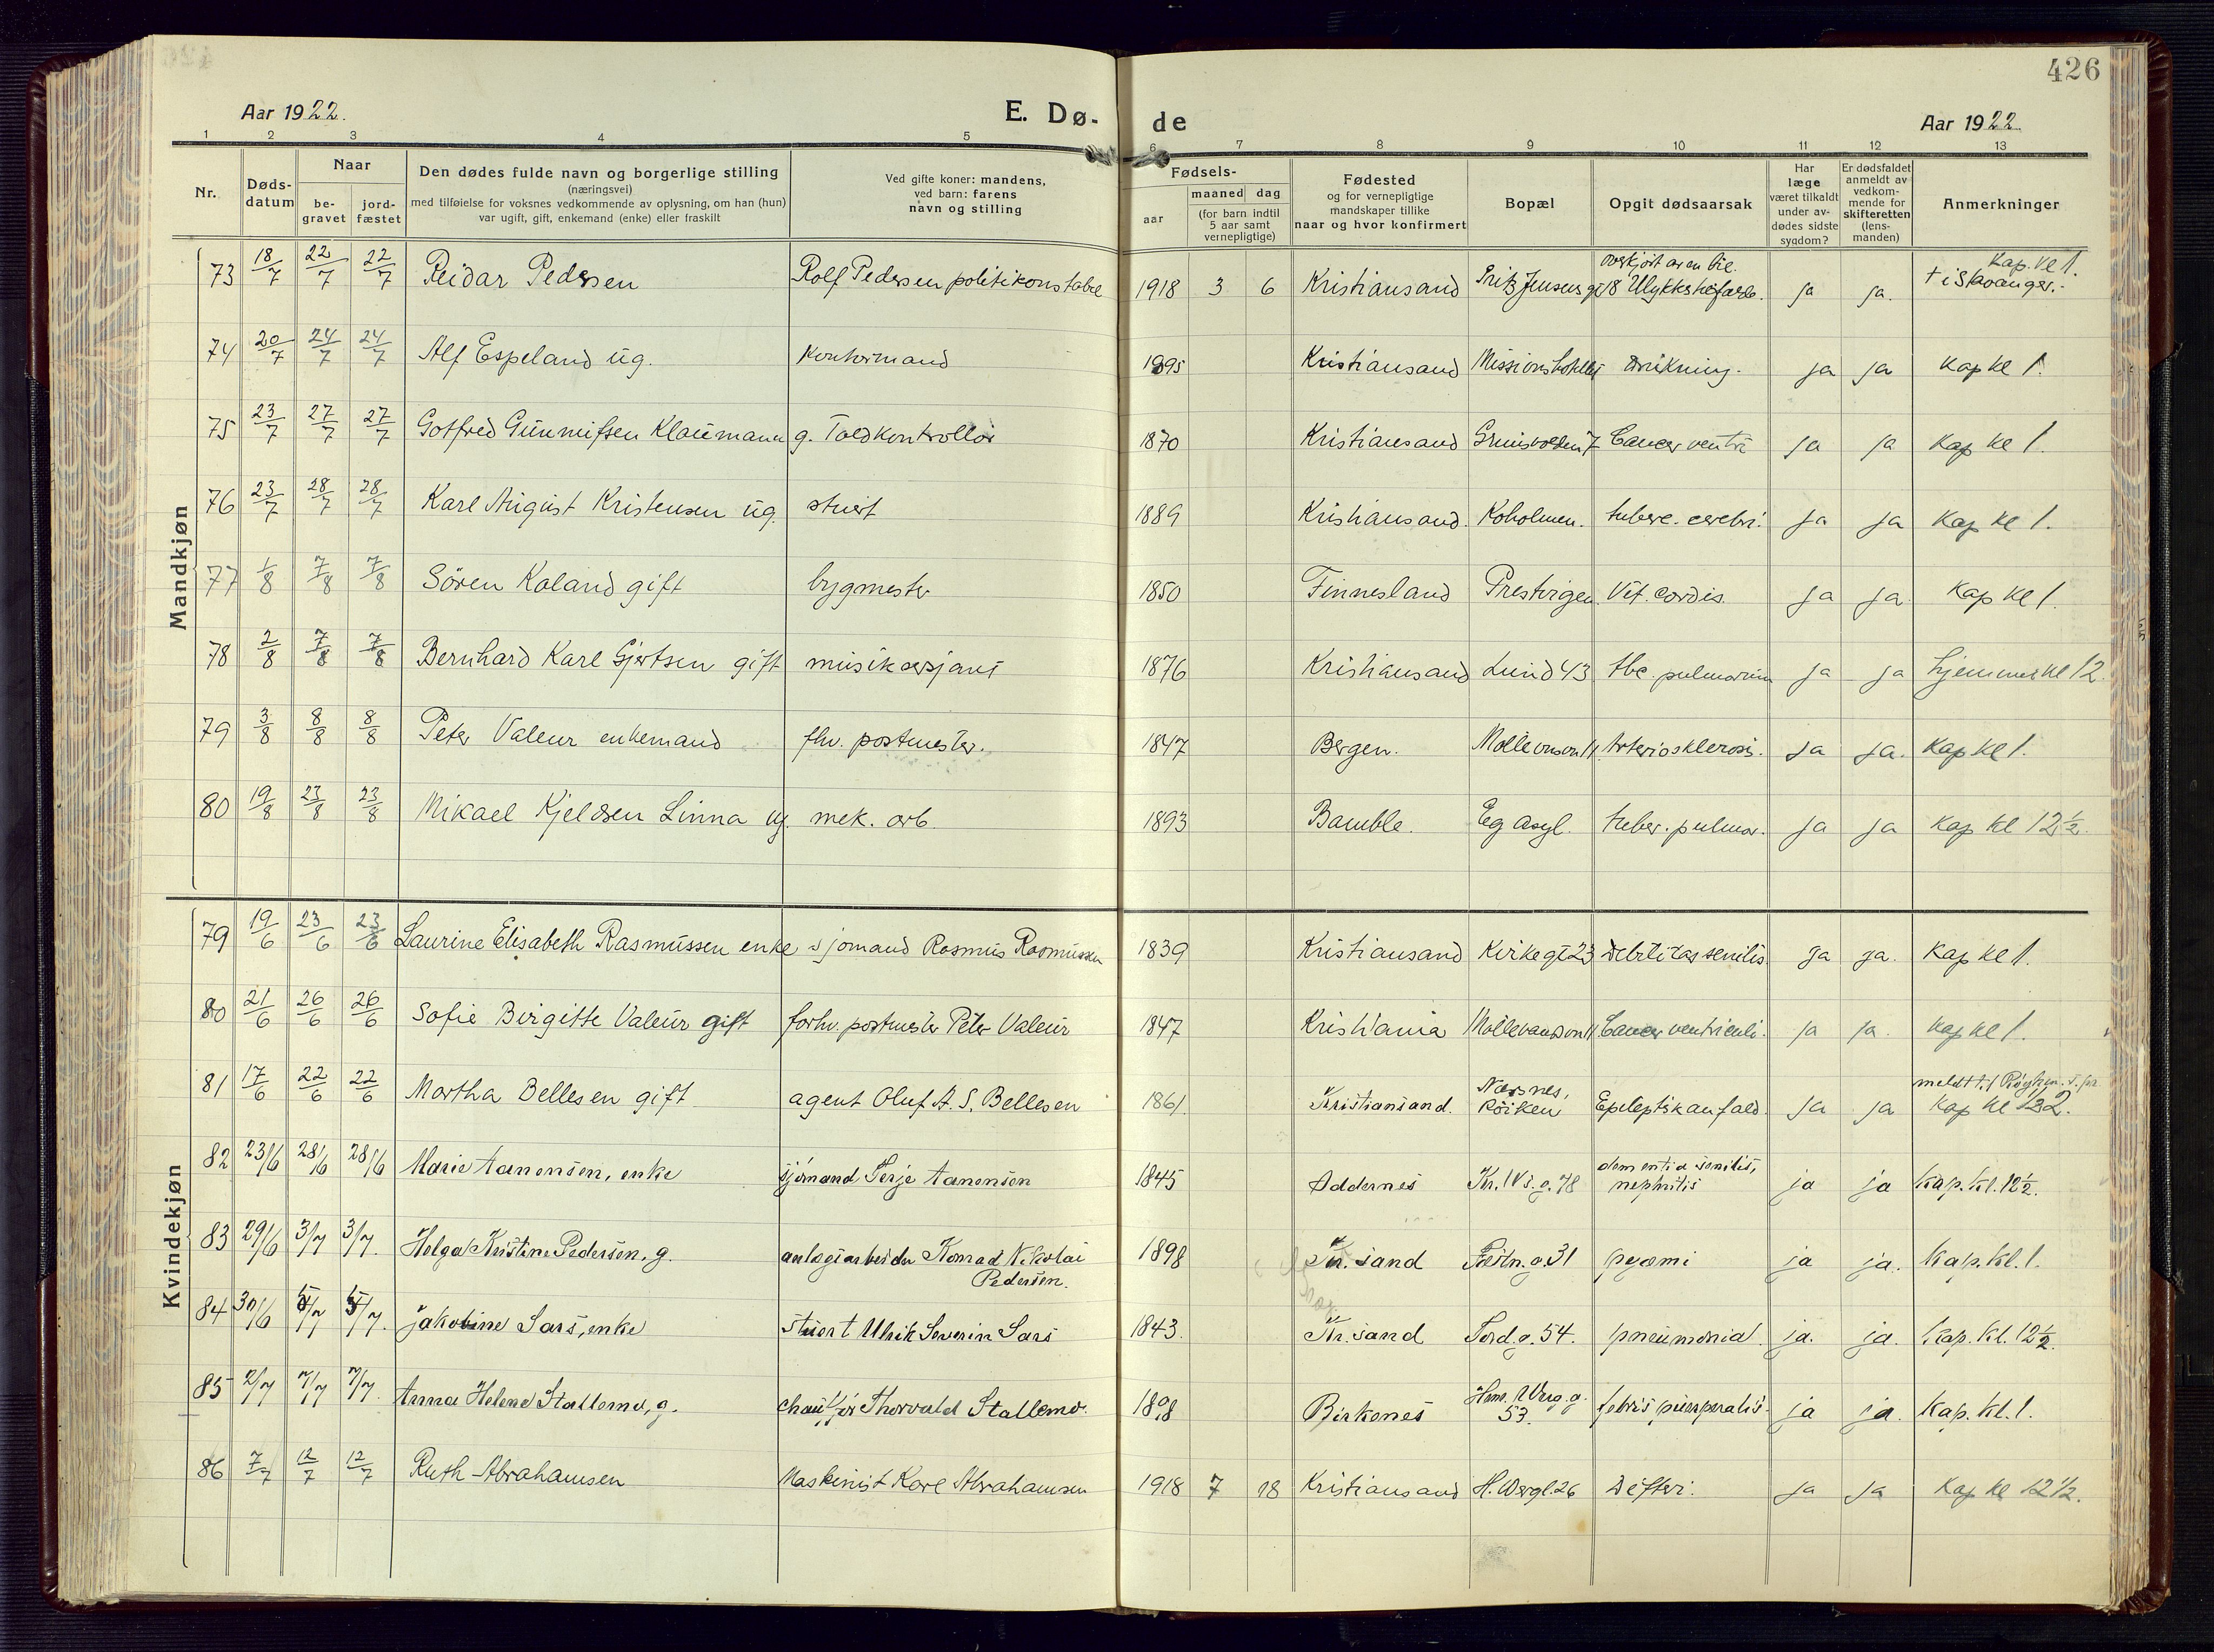 426
Aar 1922.
E. Dø-
de
Aar 1922
1 2 3 4 5 6 7 8 9 10 11 12 13
Nr.
Døds-
datum
Naar
be-
gravet
jord-
fæstet
Den dødes fulde navn og borgerlige stilling
(næringsvei)
med tilføielse for voksnes vedkommende av oplysning, om han (hun)
var ugift, gift, enkemand (enke) eller fraskilt
Ved gifte koner: mandens,
ved barn: farens
navn og stilling
Fødsels-
aar
maaned dag
(for barn indtil
5 aar samt
vernepligtige)
Fødested
og for vernepligtige
mandskaper tillike
naar og hvor konfirmert
Bopæl
Opgit dødsaarsak
Har
læge
været tilkaldt
under av-
dødes sidste
sygdom?
Er dødsfaldet
anmeldt av
vedkom-
mende for
skifteretten
(lens-
manden)
Anmerkninger
Mandkjøn
overkjört av en bil. Kap. kl 1.
73 18/7 22/7 22/7 Reidar Pedersen Rolf Pedersen politikonstabel 1918 3 6 Kristiansand Fritz Jensens gt 8 Ulykkestilfælde. ja ja. † i Stavanger.
74 20/7 24/7 24/7 Alf Espeland ug. Kontormand 1895 Kristiansand Missionshotellet drukning. ja ja Kap kl 1.
75 23/7 27/7 27/7 Gotfred Gunnufsen Klaumann g. Toldkontrollör 1870 Kristiansand 7 Cancer ventri ja ja Kap kl 1.
76 23/7 28/7 28/7 Karl August Kristensen ug. stuert 1889 Kristiansand. Koholmen. tuberc. cerebri. ja ja Kap kl 1.
77 1/8 7/8 7/8 Sören Koland gift bygmester 1850 Finnesland Prestvigen Vit. cordis. ja ja Kap kl 1.
78 2/8 7/8 7/8 Bernhard Karl Gjertsen gift musikersjant 1876 Kristiansand Lund 43 tbc. pulmonum ja ja hjemme kl 12.
79 3/8 8/8 8/8 Peter Valeur enkemand fhv. postmester. 1847 Bergen. 11. Arteriosklerosis. ja ja. Kap kl 1.
80 19/8 23/8 23/8 Mikael Kjeldsen Linna ug. mek. arb. 1893 Bamble. Eg asyl. tuber. pulmon. ja ja Kap kl 12½.
Kvindekjøn
79 19/6 23/6 23/6 Laurine Elisabeth Rasmussen enke sjömand Rasmus Rasmussen 1839 Kristiansand Kirkegt 23 debilitas senilis. ja ja. Kap kl 1.
80 21/6 26/6 26/6 Sofie Birgitte Valeur gift forhv. postmester Peter Valeur 1847 Kristiania Möllevandsvn 11. Cancer ventriculi. ja ja. Kap kl 1.
Næsnes, meldt til Röyken. s.pr.
81 17/6 22/6 22/6 Martha Bellesen gift agent Oluf A. S. Bellesen 1861. Kristiansand. Röiken Epileptisk anfald. ja ja Kap kl 12.
dementia senilis,
82 23/6 28/6 28/6 Marie Aanensen, enke sjömand Terje Aanensen 1845 Oddernes Kr. IVs. g. 78 nephritis ja ja Kap. kl. 12½.
83 29/6 3/7 3/7. Helga Kristine Pedersen, g. anlegsarbeider Konrad Nikolai
Pedersen. 1898 Kr.sand Festn. g. 31 pyæmi ja ja. Kap. kl. 1.
84 30/6 5/7 5/7. Jakobine Sars, enke Stuert Ulrik Severin Sars 1843. Kr.sand Tord. g. 54. pneumonia. ja. ja. Kap. kl. 12½.
Hem. Werg. g.
85 2/7 7/7 7/7. Anna Helene Stallemo, g. chaufför Thorvald Stallemo. 1898 Birkenes 53. febris puerperalis. ja ja. Kap. kl. 1.
86 7/7 12/7 12/7 Ruth Abrahamsen Maskinist Karl Abrahamsen 1918 7 18 Kristiansand H. Wergl. 26 Difteri. ja ja Kap kl 12½.